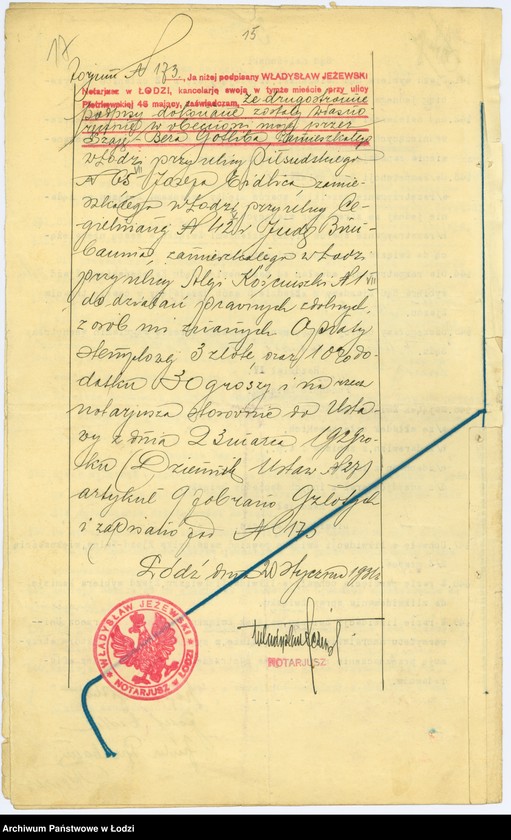 17
15
№ 173., Ja niżej podpisany WŁADYSŁAW JEŻEWSKI
Notarjusz w ŁODZI, kancelarję swoją w tymże mieście przy ulicy
Piotrkowskiej 46 mający, zaświadczam, że
podpisy dokonane zostały własno
ręcznie w obecności mojej przez
Bera Gotliba, zamieszkałego
w Łodzi przy ulicy Piłsudskiego
№ 65, Józefa Eidlica, zamie-
szkałego w Łodzi przy ulicy Ce-
gielnianej № 42 i Judę Birn-
bauma, zamieszkałego w Łodzi
przy ulicy Aleji Kościuszki № 1
do działań prawnych zdolnych,
z osób mi znanych Opłaty
stemplowej 3 złote oraz 10% do-
datku 30 groszy i na rzecz
notarjusza stosownie do Usta-
wy z dnia 23 marca 1929 ro-
ku (Dziennik Ustaw № 27)
artykuł 9 pobrano 9 złotych
i zapisano pod № 173
Łódź dnia 20 stycznia 1931 r.
NOTARJUSZ
WŁADYSŁAW JEŻEWSKI
NOTARJUSZ w ŁODZI
Archiwum Państwowe w Łodzi